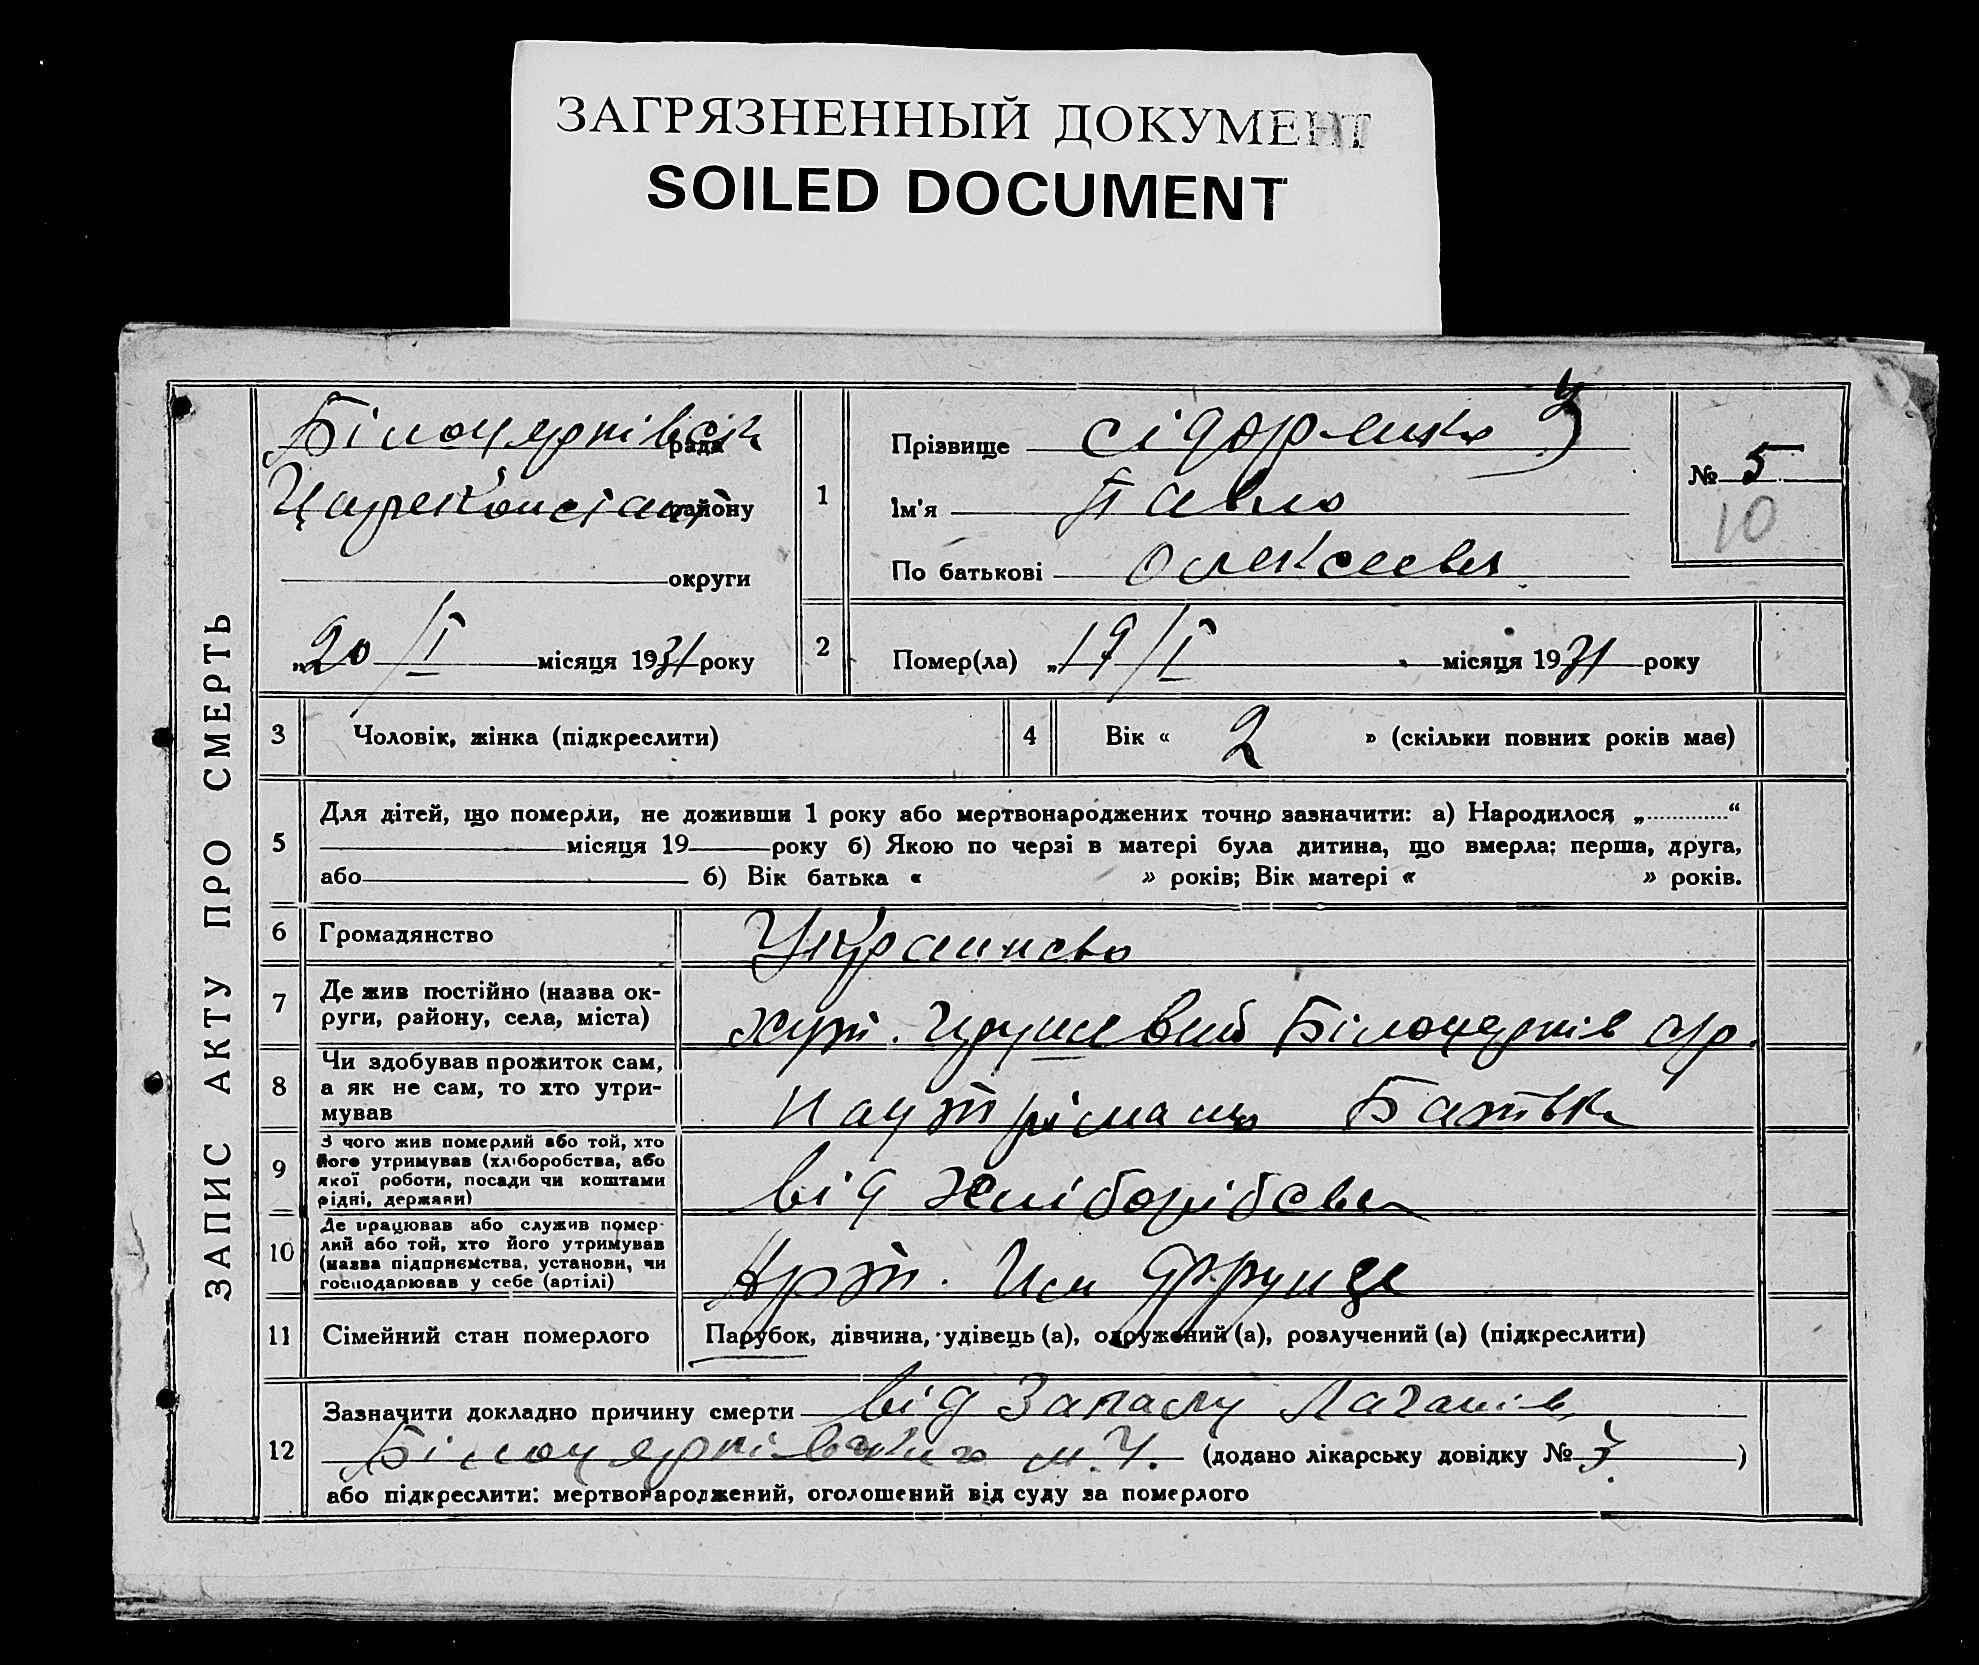 ЗАГРЯЗНЕННЫЙ ДОКУМЕНТ
SOILED DOCUMENT
ЗАПИС АКТУ ПРО СМЕРТЬ
рада
району
округи
„20/I місяця 1931 року
1
Прізвище Сідоренко
Ім'я Павло
По батькові Олексеевич
№ 5
10
2
Помер(ла) „19/I місяця 1931 року
3 Чоловік, жінка (підкреслити)
4 Вік « 2 » (скільки повних років має)
5
Для дітей, що померли, не доживши 1 року або мертвонароджених точно зазначити: а) Народилося „............“
місяця 19 року б) Якою по черзі в матері була дитина, що вмерла: перша, друга,
або б) Вік батька « » років; Вік матері « » років.
6 Громадянство Украинсько
7 Де жив постійно (назва ок-
руги, району, села, міста)
хут.
8 Чи здобував прожиток сам,
а як не сам, то хто утри-
мував
Батька
9 З чого жив померлий або той, хто
його утримував (хліборобства, або
якої роботи, посади чи коштами
рідні, держави)
від хліборобства
10 Де працював або служив помер-
лий або той, хто його утримував
(назва підприємства, установи, чи
господарював у себе (артілі)
Арт. Им Фрунзе
11 Сімейний стан померлого Парубок, дівчина, удівець (а), одружений (а), розлучений (а) (підкреслити)
12
Зазначити докладно причину смерти від Запалу Лагенів
(додано лікарську довідку № 3 )
або підкреслити: мертвонароджений, оголошений від суду за померлого